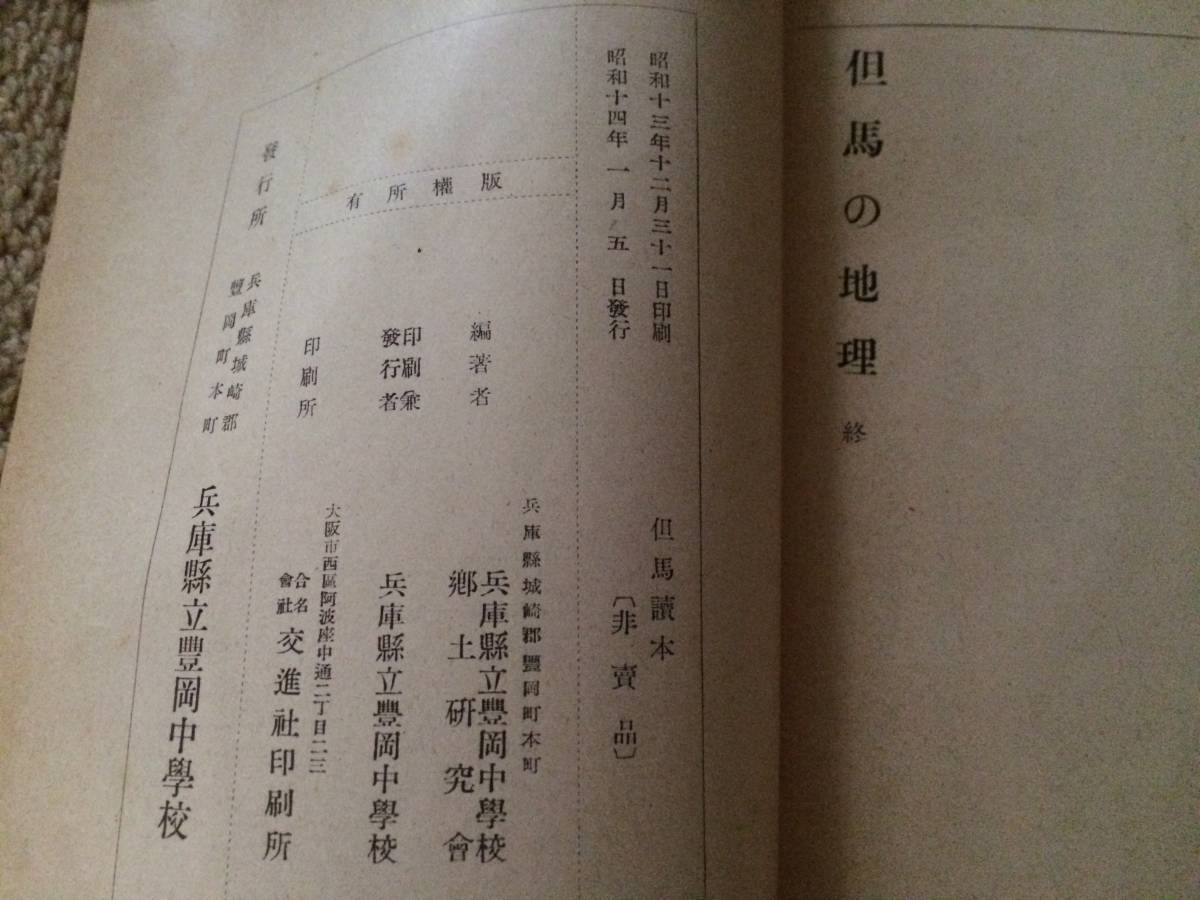 但馬の地理 終
昭和十三年十二月三十一日印刷
昭和十四年一月五日發行
但馬讀本
〔非賣品〕
版權所有
編著者
兵庫縣城崎郡豐岡町本町
兵庫縣立豐岡中學校
鄕土研究會
印刷兼
發行者
兵庫縣立豐岡中學校
印刷所
大阪市西區阿波座中通二丁目二三
合名
會社
交進社印刷所
發行所
兵庫縣城崎郡
豐岡町本町
兵庫縣立豐岡中學校